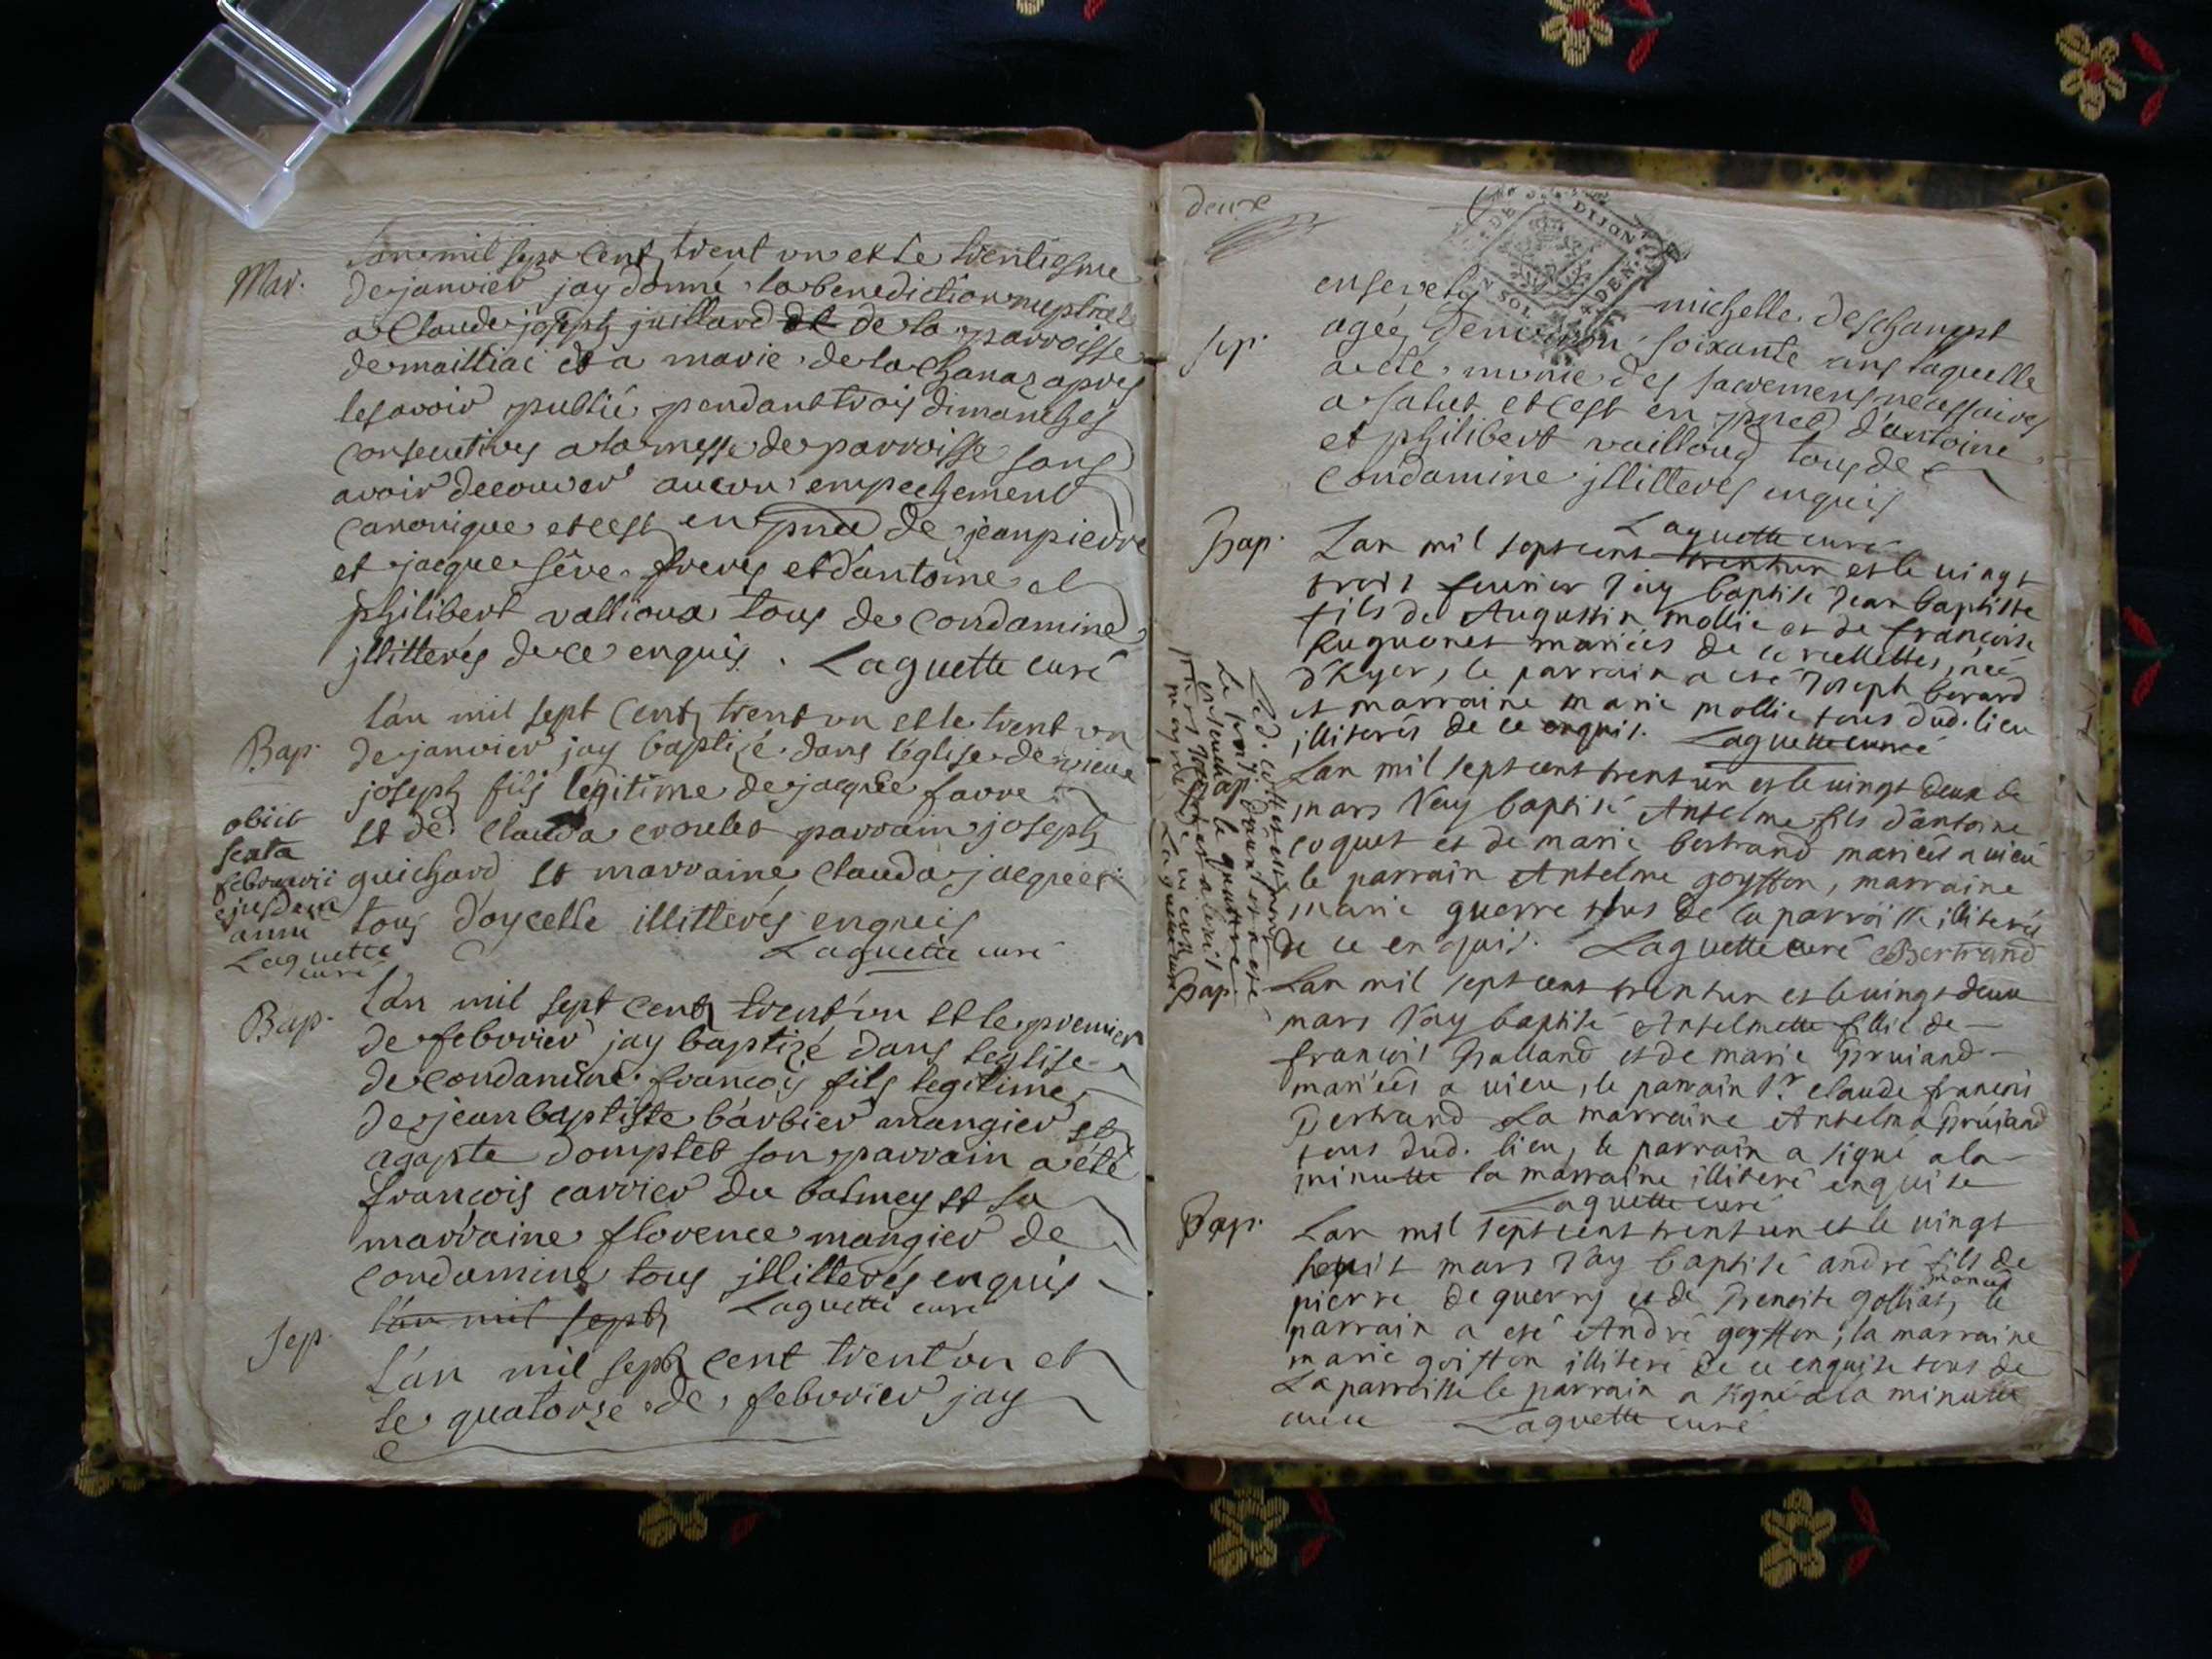 Mar.
Lan mil sept cent trent un et le trentiesme
de janvier jay donné la benediction nuptiale
a Claude joseph juillard de de la parroisse
de mailliai et a marie de la Chanaz apres
les avoir publié pendant trois dimanches
consecutives a la messe de parroisse sans
avoir decouver aucun empechement
canonique et cest en pnce de jean pierre
et jacque sève freres et d'antoine et
philibert vallioud tous de condamine
jllitterés de ce enquis. Laguette curé
Bap.
l'an mil sept cent trent un et le trent un
de janvier jay baptizé dans l'église de vieux
joseph fils légitime de jacque favre
et de Clauda croulet parrain joseph
guichard et marraine Clauda jacquet
tous d'oycelle illitterés enquis
Laguette curé
obiit
sexta
februarii
ejusdem
anni
Laguette
curé
Bap.
l'an mil sept cent trent'un et le premier
de febvrier jay baptizé dans l'eglise
de condamine françois fils legitime
de jean baptiste barbier mangier et
agapte domptet son parrain a été
francois carrier du balmey et sa
marraine florence mangier de
condamine tous jllitterés enquis
l'an mil sept Laguette curé
Sep.
L'an mil sept cent trent'un et
le quatorze de febvrier jay
deux
DIJON
SOL
Sep.
ensevely michelle deschampt
agée d'environ soixante ans laquelle
a eté munie des sacremens necessaires
a salut et cest en pnce d'antoine
et philibert vailloud tous de
condamine jllitteres enquis
Laguette curé
Bap.
Lan mil sept cent trentun et le vingt
trois feurier J'ay baptisé Jean baptiste
fils de Augustin mollie et de francoise
huguonet mariés de ce
d'hyer, le parrain a eté Joseph berard
et marraine marie mollie tous dud. lieu
illiterés de ce enquis. Laguette curé
Lan mil sept cent trent un et le vingt deux de
mars J'ay baptisé Antelme fils d'antoine
coquet et de marie bertrand mariés a vieu
le parrain Antelme goyffon, marraine
marie guerre tous de la parroisse illiterés
de ce enquis. Laguette curé Bertrand
Bap.
Lan mil sept cent trentun et le vingt deux
mars J'ay baptisé Antelmette fillie de
francois balland et de marie Pruiand
mariés a vieu, le parrain Sr. claude francois
Bertrand La marraine Antelma Pruiand
tous dud. lieu, le parrain a signé a la
minutte la marraine illiteré enquise
Laguette curé
Bap.
Lan mil sept cent trent un et le vingt
heuit mars J'ay baptisé andré fils de
pierre de guerry et de Benoite golliat, le
parrain a eté André goyffon, la marraine
marie goiffon illiteré de ce enquise tous de
La parroisse le parrain a signé a la minutte
Laguette curé